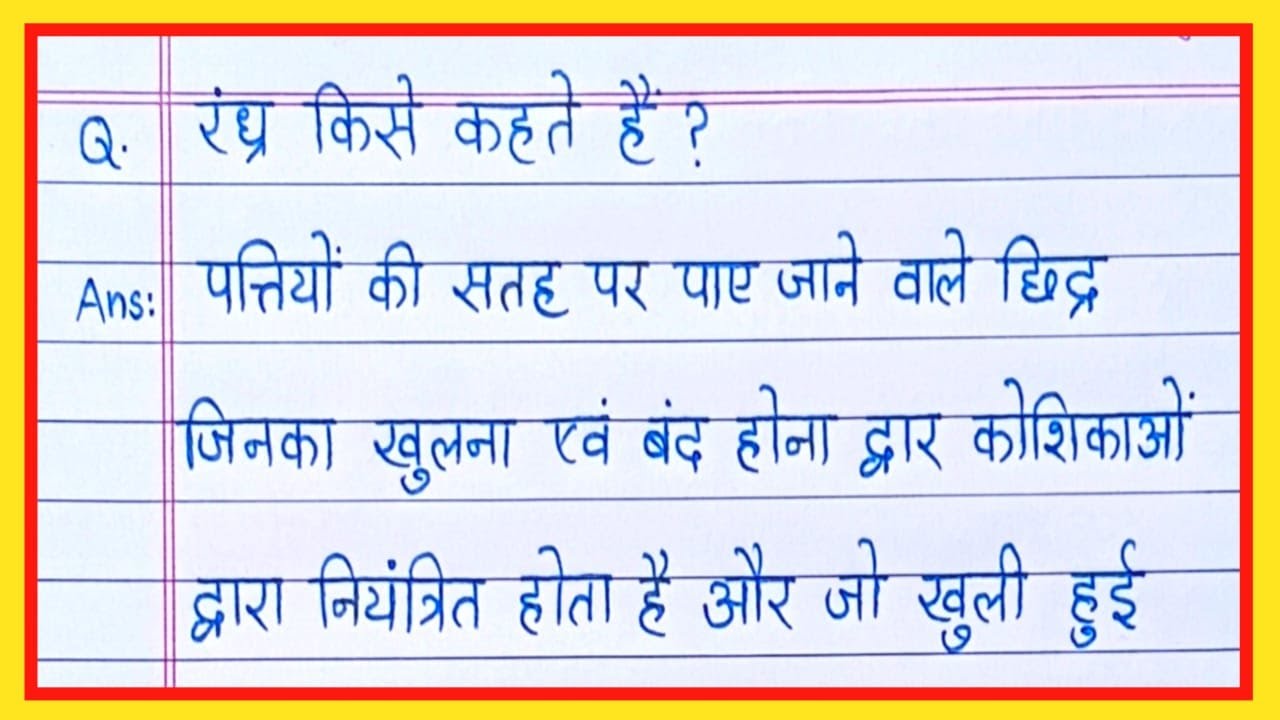 Q. रंध्र किसे कहते हैं ?
Ans: पत्तियों की सतह पर पाए जाने वाले छिद्र
जिनका खुलना एवं बंद होना द्वार कोशिकाओं
द्वारा नियंत्रित होता है और जो खुली हुई